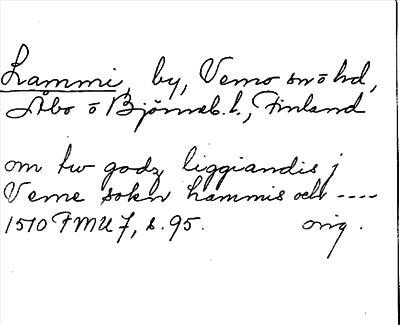 Lammi, by, Vemo sn o hd,
Åbo o Björneb. l., Finland
om tw godz liggiandis j
Veme sokn lammis och ----
1510 FMU 7, s. 95. orig.